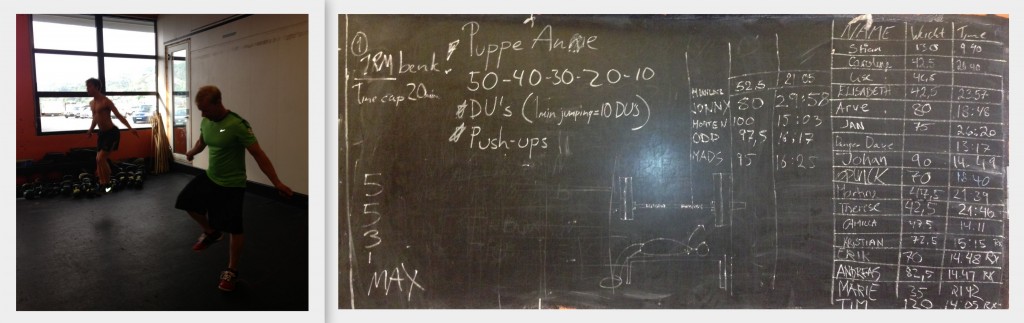 ①
1RM benk!
Time cap 20min
5
5
3
1
MAX
Puppe Annie
50-40-30-20-10
# DU's (1min jumping=10 DU's)
# Push-ups
52,5 21:05
JONNY 80 29:58
100 15:03
ODD 97,5 16:17
MADS 95 16:25
NAME Weight Time
Stian 130 9.40
42,5
Lise 40,5
ELISABETH 42,5 23:57
Arve 80 18:48
JAN 75 26:20
13:17
Johan 90 14.49
70 18:40
Martine 47,5 21.39
Therese 42,5 21:46
CAMILLA 47,5 14.11
KRISTIAN 72,5 15:15 RX
ERIK 70 14.48 RX
ANDREAS 82,5 14.47 RX
MARIE 35 21.42
TIM 120 14.05 RX